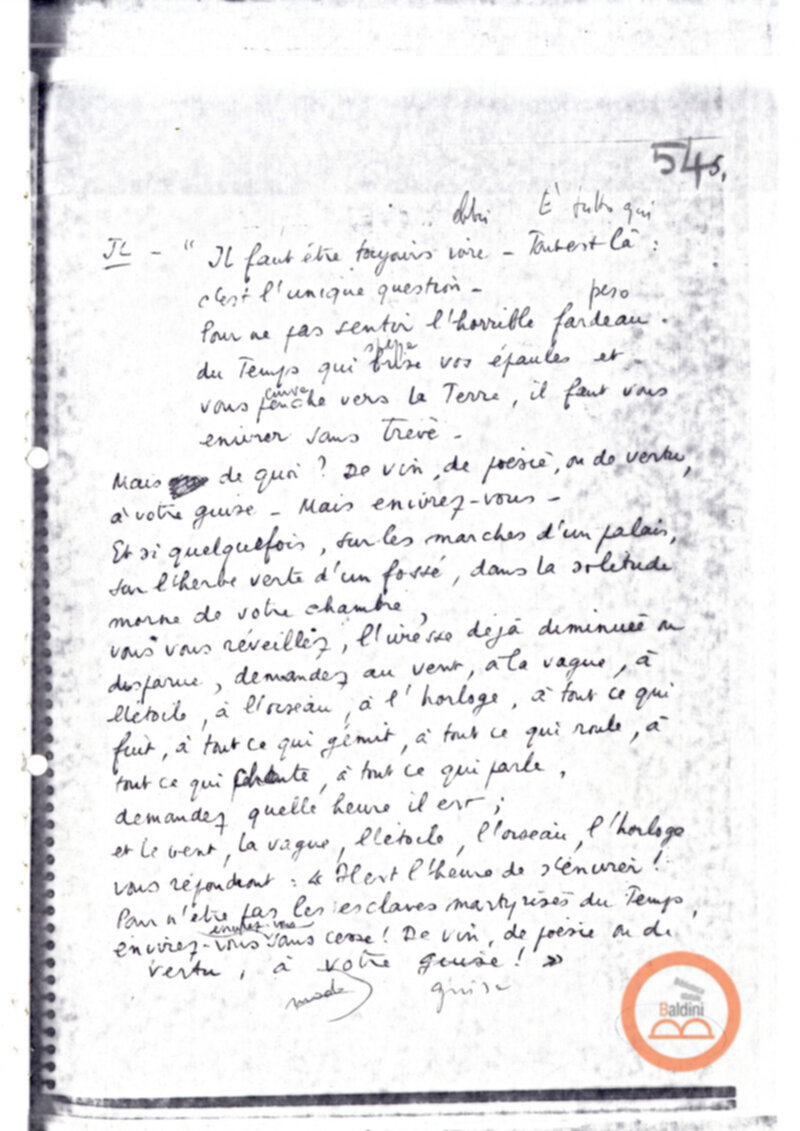 545.
ebbri È tutto qui
JL - " Il faut être toujours ivre - Tout est là :
c'est l'unique question -
peso
Pour ne pas sentir l'horrible fardeau
spezza
du Temps qui brise vos épaules et
curva
vous penche vers la Terre, il faut vous
enivrer sans trève -
Mais de quoi ? De vin, de poésie, ou de vertu,
à votre guise - Mais enivrez-vous -
Et si quelquefois, sur les marches d'un palais,
sur l'herbe verte d'un fossé, dans la solitude
morne de votre chambre,
vous vous réveillez, l'ivresse déjà diminuée ou
disparue, demandez au vent, à la vague, à
l'étoile, à l'oiseau, à l'horloge, à tout ce qui
fuit, à tout ce qui gémit, à tout ce qui roule, à
tout ce qui chante, à tout ce qui parle,
demandez quelle heure il est ;
et le vent, la vague, l'étoile, l'oiseau, l'horloge
vous répondront : « Il est l'heure de s'énivrer !
Pour n'être pas les esclaves martyrisés du Temps,
enivrez-vous
enivrez-vous sans cesse ! De vin, de poésie ou de
vertu, à votre guise ! »
modo guise
Biblioteca statale
Baldini